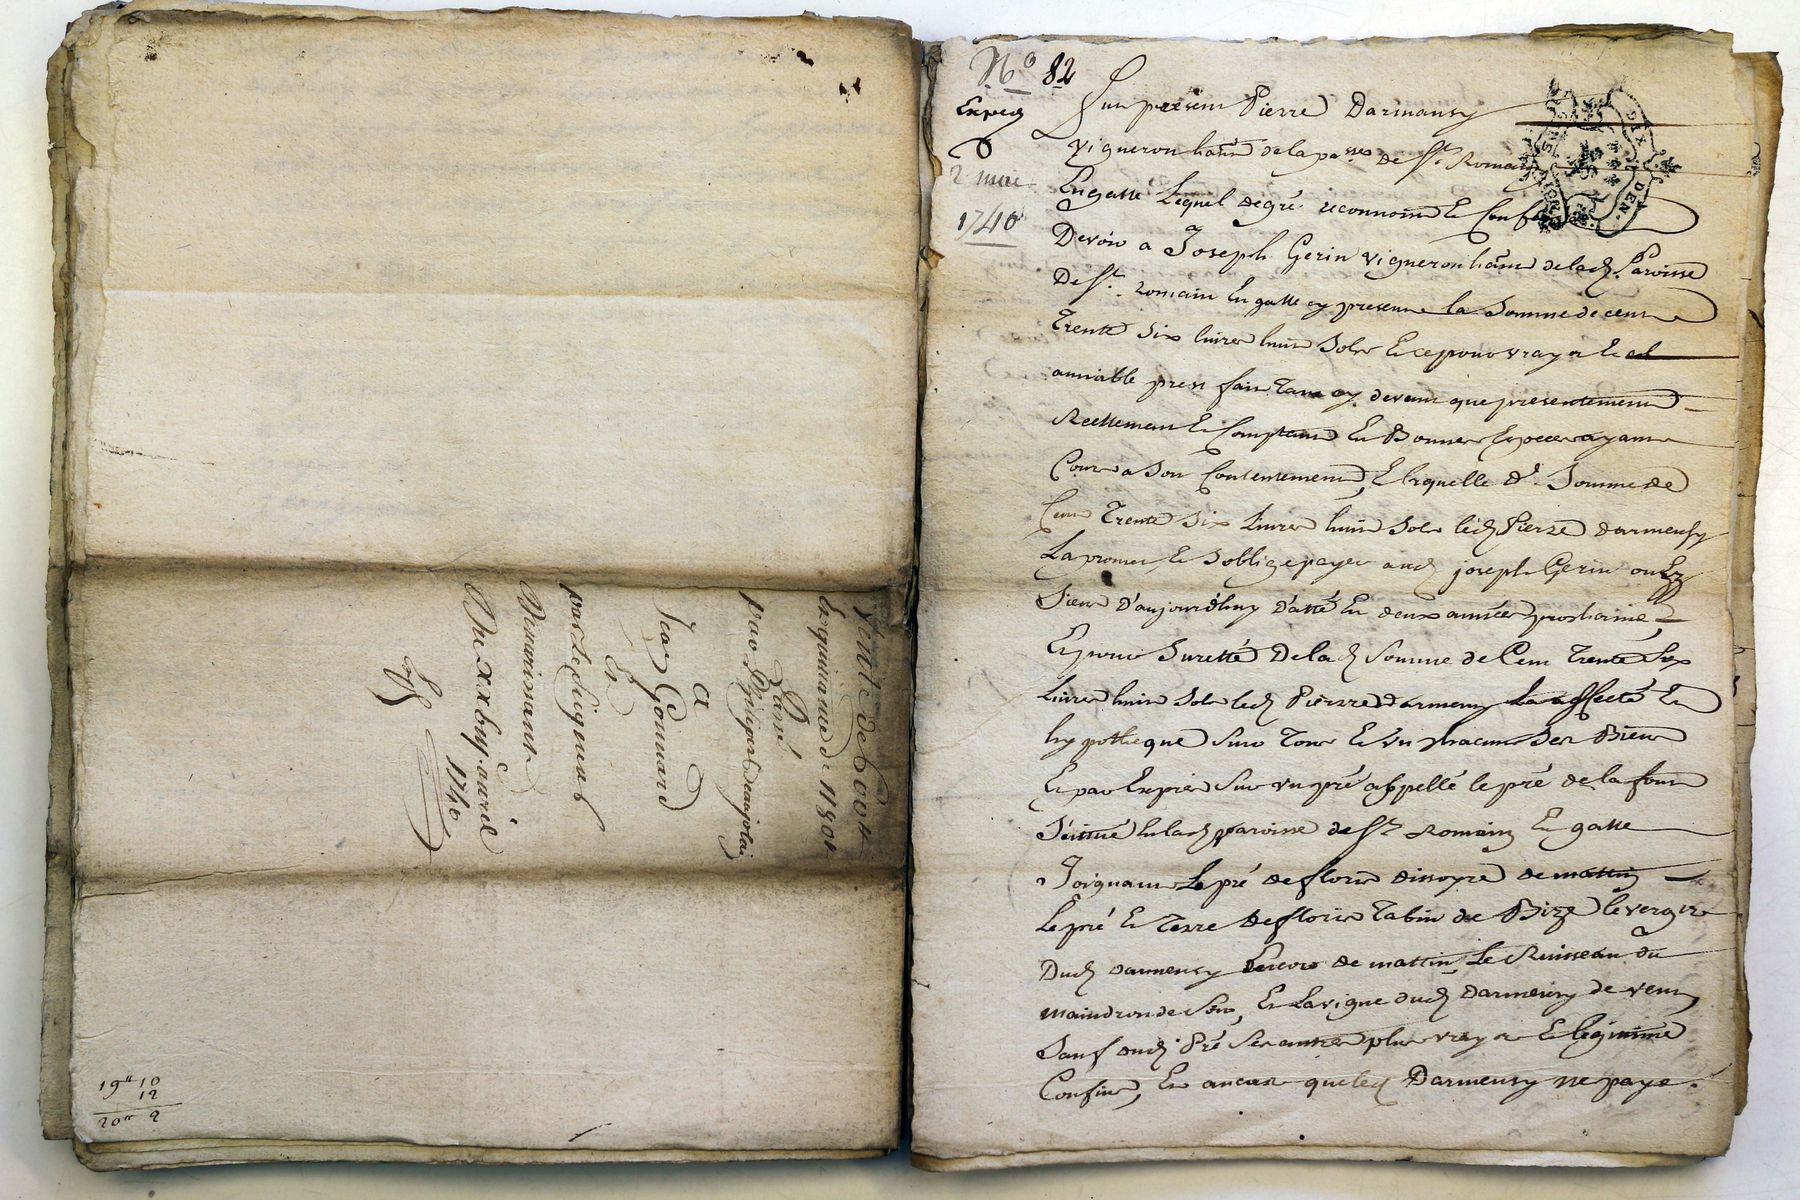 Vente de 600 tt
et quittance de 1180 tt
Passé
par Philipert Beaujolais
a
Jean Gonnard
Et
par Ledit
Du xxbiij. avril
1746
19 tt 10
12
20 tt 2
No 82
Exped
2 mai
1740
Fut present Pierre Darmansy
vigneron habt de la passe de St. Romain
En gatte Lequel de gré reconnoit et confesse
Devoir a Joseph Gerin vigneron habt de lad. Paroisse
De St. romain En gatte cy present la Somme de cent
Trente Six livres huit Sols Et ce pour vray et
amiable prest fait tant cy devant que presentement
Reellement Et Comptant En Bonnes Especes ayant
Cours a Son Contentement, Laquelle d. Somme de
Cent Trente Six Livres huit Sols led. Pierre darmensy
La promet Et Soblige payer aud. joseph Gerin ou Ez
Siens D'aujourdhuy datte En deux années prochaine,
Et pour Suretté De lad. Somme de Cent Trente Six
Livres huit Sols led. Pierre Darmensy La affecté Et
hypotheque Sur Tous Et Un chacuns Ses Biens
Et par Exprès Sur un pré appellé le pré de la font
Scittué En lad. paroisse de St. Romain En gatte
Joignant Le pré de floris dissoyre de mattin
Le pré Et Terre De floris Tabin de Bize le verger
Dud. darmensy Encore de mattin, Le Ruisseau du
maindron de Soir, Et La vigne dud. Darmensy de vent
Sauf dud. Pré Ses autres plus vrays Et legitimes
Confins, Et au cas que led. Darmensy ne paye.